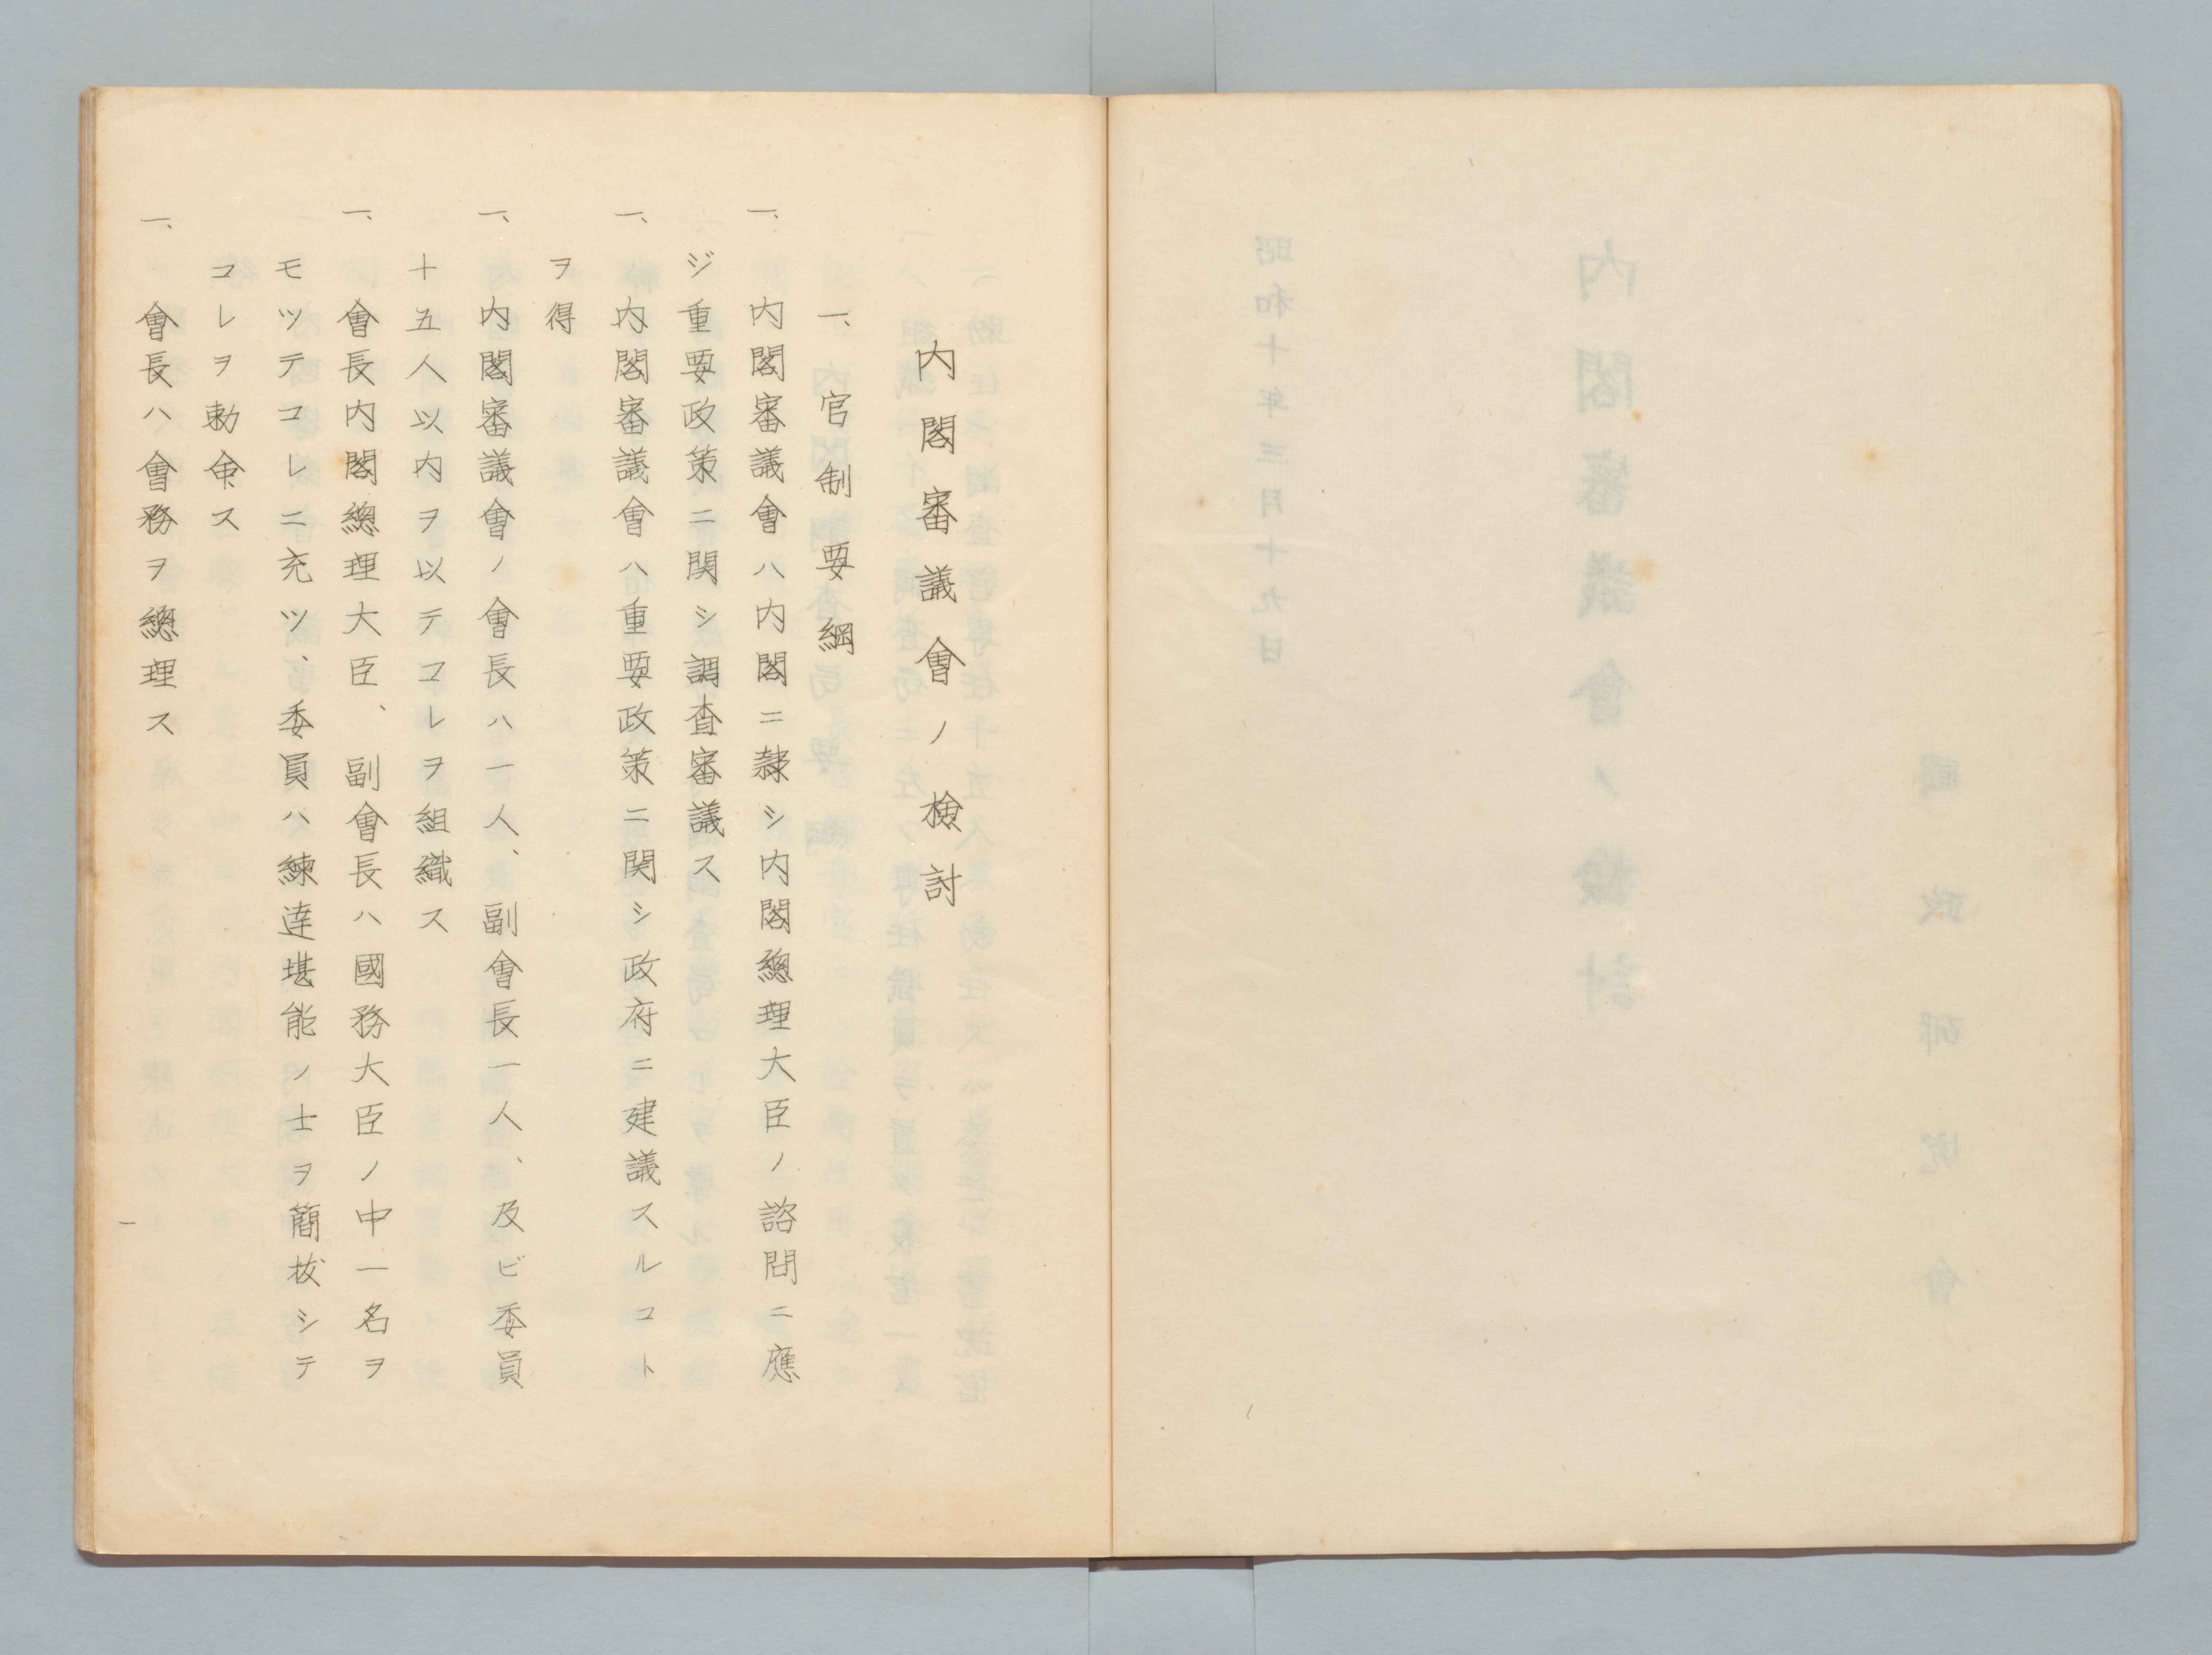 内閣審議會ノ檢討
一、官制要綱
一、内閣審議會ハ内閣ニ隷シ内閣總理大臣ノ諮問ニ應
ジ重要政策ニ関シ調査審議ス
一、内閣審議會ハ重要政策ニ関シ政府ニ建議スルコト
ヲ得
一、内閣審議會ノ會長ハ一人、副會長一人、及ビ委員
十五人以内ヲ以テコレヲ組織ス
一、會長内閣總理大臣、副會長ハ國務大臣ノ中一名ヲ
モツテコレニ充ツ、委員ハ練達堪能ノ士ヲ簡拔シテ
コレヲ勅命ス
一、會長ハ會務ヲ總理ス
一